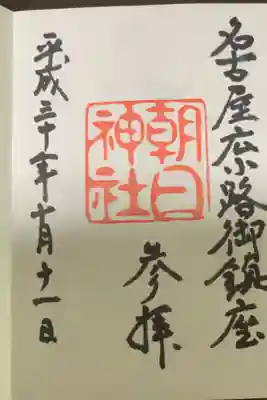 名古屋広小路御鎮座
朝日
神社
参拝
平成三十年十月十一日